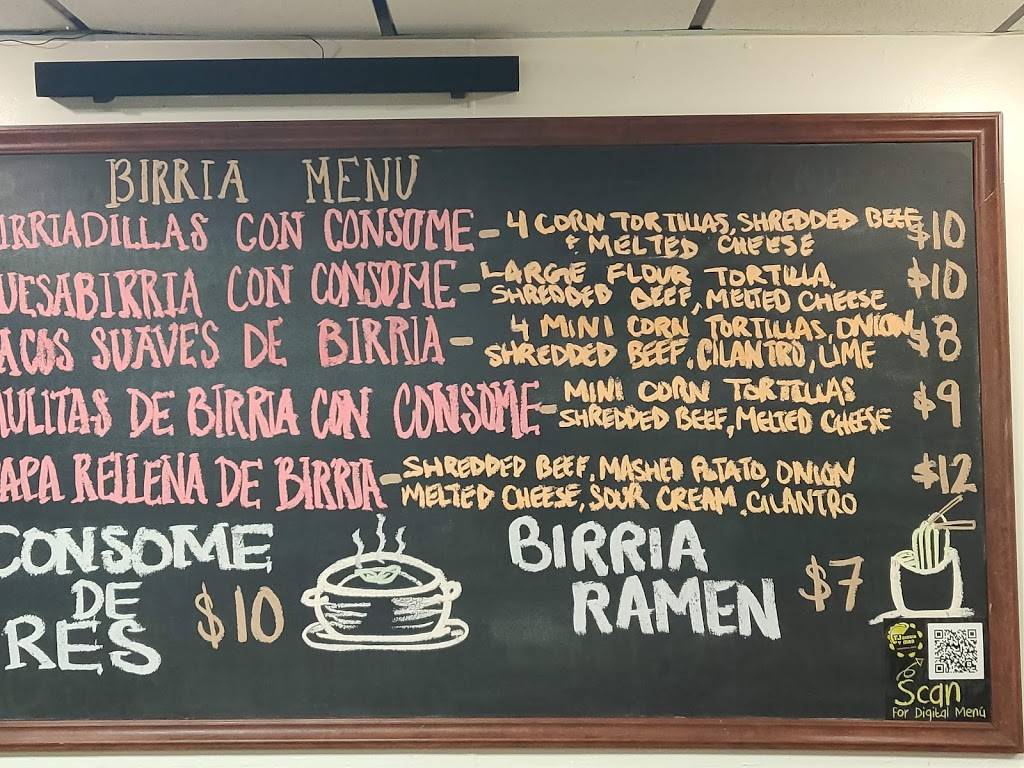 BIRRIA MENU
IRRIADILLAS CON CONSOME - 4 CORN TORTILLAS, SHREDDED BEEF $10
& MELTED CHEESE
UESABIRRIA CON CONSOME - LARGE FLOUR TORTILLA, $10
SHREDDED BEEF, MELTED CHEESE
ACOS SUAVES DE BIRRIA - 4 MINI CORN TORTILLAS, ONION, $8
SHREDDED BEEF, CILANTRO, LIME
ULITAS DE BIRRIA CON CONSOME - MINI CORN TORTILLAS $9
SHREDDED BEEF, MELTED CHEESE
APA RELLENA DE BIRRIA - SHREDDED BEEF, MASHED POTATO, ONION $12
MELTED CHEESE, SOUR CREAM, CILANTRO
CONSOME
DE
RES $10
BIRRIA
RAMEN $7
Scan
For Digital Menú